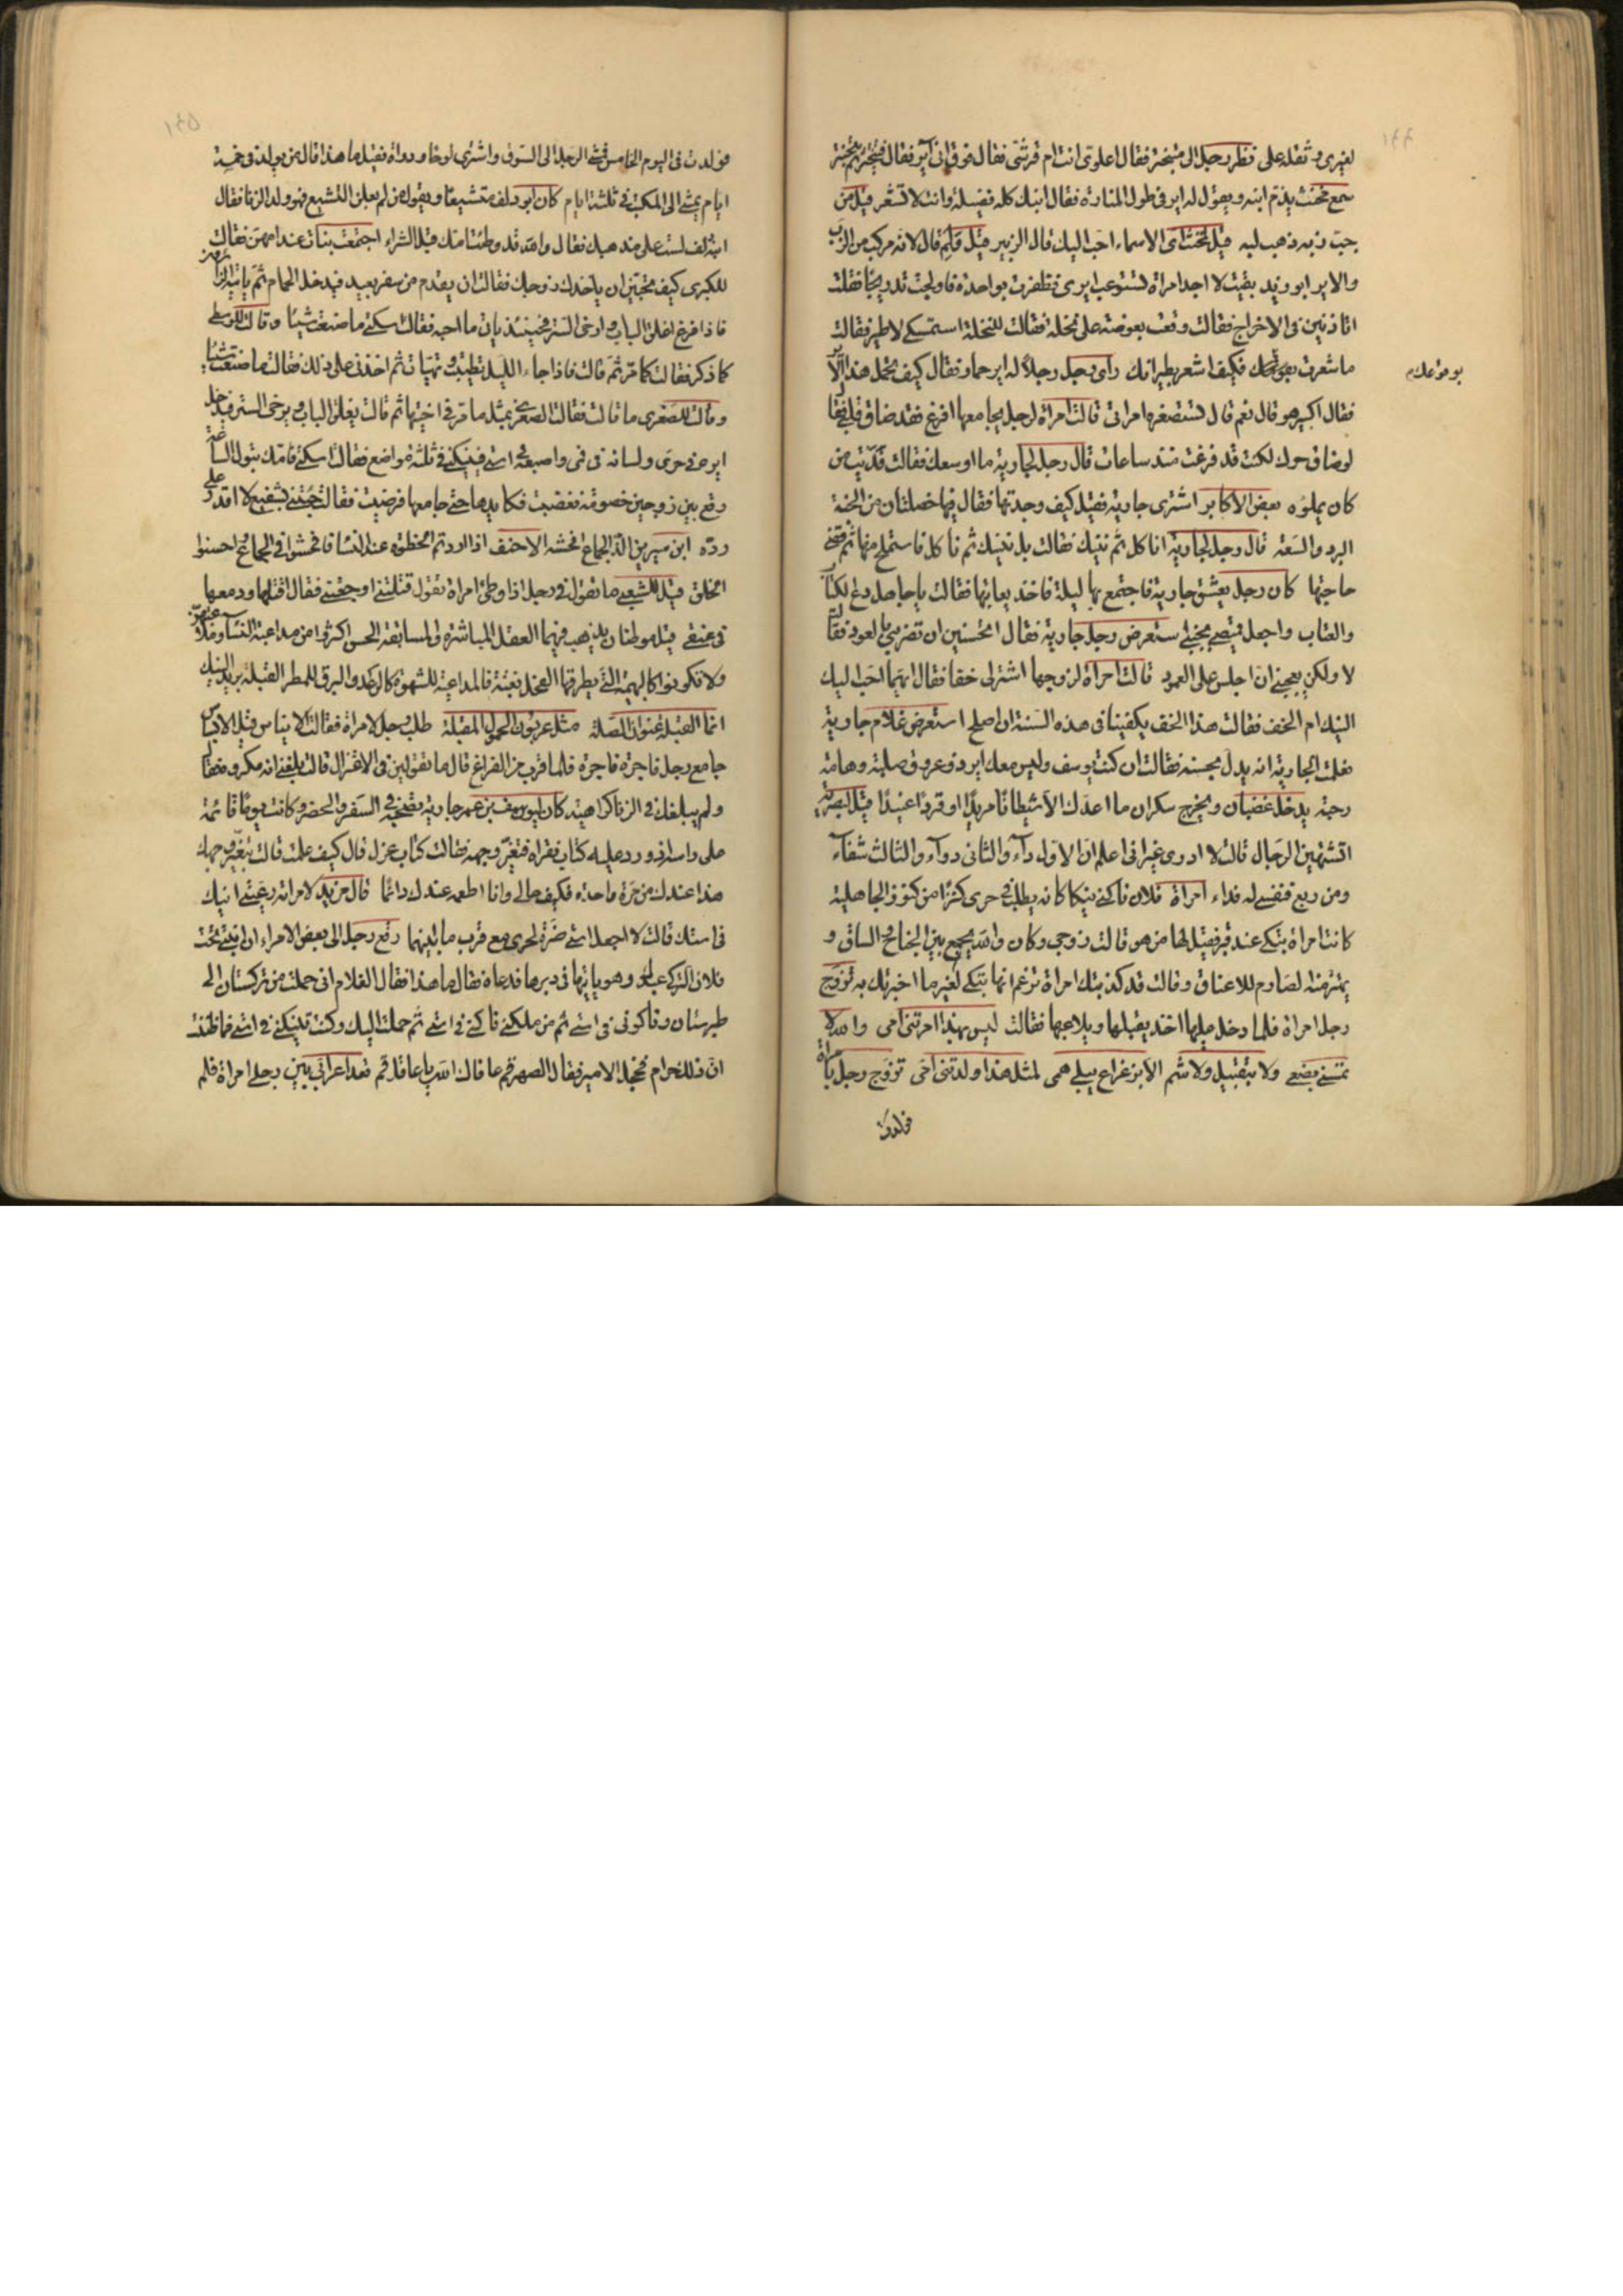 لغيرى وثقله على نظر رجل الى متبخترة فقال اعلوى انت ام قرشى فقال فوقى اير فقال
سمع مخنث يذم ابنه ويقول له اير فى طول المنارة فقال ابنك كله فضيلة وانت لا تشعر قيل من
جبّ زبه ذهب لبه قيل لمخنث اى الاسماء احب اليك قال الزبير قيل فلم قال لانه مركب من الزب
والاير ابو زيد بقيت لا اجد امراة تستوعب ايرى فظفرت بواحدة فاولجت تدريجًا فقلت
اتاذنين فى الاخراج فقالت وقعت بعوضة على نخلة فقالت للنخلة استمسكى لاطير فقالت
ما شعرت بوقوعك فكيف اشعر بطيرانك راى رجل رجلاً له اير حمار فقال كيف تحمل هذا
بوقوعك
فقال اكبير هو قال نعم قال تستصغرها مراتى قالت امراة لرجل يجامعها افرغ فقد ضاق قلبى فقال
لو ضاق حرك لكنت قد فرغت منذ ساعات قال رجل لجارية ما اوسعك فقالت فديت من
كان يملؤه بعض الاكابر اشترى جارية فقيل كيف وجدتها فقال فيها خصلتان من الجنة
البرد والسعة قال رجل لجارية اناكل ثم ننيك فقالت بل ننيك ثم ناكل فاستملح منها ثم قضى
حاجتها كان رجل يعشق جارية فاجتمع بها ليلة فاخذ يعاتبها فقالت يا جاهل دع
والعتاب واجعل قميصى استعرض رجل جارية فقال اتحسنين ان تضربى بالعود فقالت
لا ولكن يعجبنى ان اجلس على العمود قالت امراة لزوجها اشتر لى خفا فقال ايهما احب اليك
النيك ام الخف فقالت هذا الخف يكفينا فى هذه السنة ان اصلح استعرض غلام جارية
فعلمت الجارية انه يدل بحسنه فقالت ان كنت يوسف وليس معك اير ذو عروق صلبة وهامة
رحبة يدخل غضبان ويخرج سكران ما اعدك الا شيطانا مريدًا او قردًا عنيدًا قيل لبصرية
اتشتهين الرجال قالت لا ادرى غير انى اعلم ان الاول دآء والثانى دوآء والثالث شفآء
ومن ربع فنفسى له فداء امراة فلان ناكنى نيكا كانه يطلب فى حرى كنزًا من كنوز الجاهلية
كانت امراة تبكى عند قبر فقيل لها من هو قالت زوجى وكان والله يجمع بين الجناح والساق و
يهتز منه الصارم للاعناق وقالت قد كذبتك امراة تزعم انها تبكى لغير ما اخبرتك به تزوج
رجل امراة فلما دخل عليها اخذ يقبلها ويلاعبها فقالت ليس بهذا امرتنى امى والله لا
تمسنى بضمى ولا بتقبيل ولا شم الا بزعزاع يسلى همى لمثل هذا ولدتنى امى تزوج رجل بامراة
فولدت
فولدت فى اليوم الخامس فمشى الرجل الى السوق واشترى لوحا ودواة فقيل ما هذا قال من يولد فى خمسة
ايام يمشى الى المكتب فى ثلثة ايام كان ابو دلف متشيعًا ويقول من لم يعلن التشيع فهو ولد الزنا فقال
ابنه دلف لست على مذهبك فقال والله قد وطئت امك قبل الشراء اجتمعت بنات عند امهن فقالت
للكبرى كيف تحبين ان ياخذك زوجك فقالت ان يقدم من سفر بعيد فيدخل الحمام ثم ياتيه الزوار
فاذا فرغ اغلق الباب وارخى الستر فحينئذ ياتى ما احبه فقالت اسكتى ما صنعت شيئًا وقالت للوسطى
كما ذكر فقالت كما مر ثم قالت فاذا جاء الليل تطيبت وتهيات ثم اخذنى على ذلك فقالت ما صنعت شيئا
وقالت للصغرى ما قالت فقالت الصغرى بمثل ما مر فى اختيها ثم قالت يغلق الباب ويرخى الستر فيدخل
ايره فى حرى ولسانه فى فمى واصبعه فى استى فينيكنى فى ثلثة مواضع فقالت اسكتى فامك تبول الساعة
وقع بين زوجين خصومة فغضبت فكايدها حتى جامعها فرضيت فقالت جئتنى بشفيع لا اقدر على
رده ابن سيرين الذ الجماع افحشه الاحنف اذا اردتم الحظوة عند النساء فافحشوا فى الجماع واحسنوا
الخلق قيل للشعبى ما تقول فى رجل اذا وطئ امراة تقول قتلتنى اوجعتنى فقال اقتلها ودمها
فى عنقى قيل موطنان يذهب فيهما العقل المباشرة والمسابقة الحسن اكثروا من مداعبة النساء وملاعبتهن
ولا تكونوا كالبهيمة التى يطرقها الفحل بغتة فالمداعبة للشهوة كالرعد والبرق للمطر القبلة بريد النيك
انما القبلة عنوان الصلة مثل عربون الحمول القبلة طلب رجل لامراة فقالت الايناس قبل الابساس
جامع رجل فاجرة فاجرة فلما قرب من الفراغ قال ما تقولين فى الاعتزال قالت بلغنى انه مكروه فقال
ولم يبلغك فى الزنا كراهية كان ليوسف بن عمر جارية تضحبه فى السفر والحضر وكانت يومًا قائمة
على راسه اذ ورد عليه كتاب فقراه فتغير وجهه فقالت كتاب عزل قال كيف علمت قالت بتغير وجهك
هذا عندك من مرة واحدة فكيف حالى وانا اطعمه عندك دائمًا قال مزبد لامراته دعينى انيك
فى استك قالت لا اجعل استى ضرة لحرى مع قرب ما بينهما رفع رجل الى بعض الامراء ان ابنتى تحت
فلان التركى وهو ياتيها فى دبرها فدعاه فقال ما هذا فقال الغلام انى حملت من تركستان الى
طبرستان وناكونى فى استى ثم من ملكنى ناكنى فى استى ثم حملت اليك وكنت تنيكنى فى استى فما ظننت
ان ذلك حرام فخجل الامير فقال الصهر قم عافاك الله يا عاقل قم قعد اعرابى بين رجلى امراة فلم